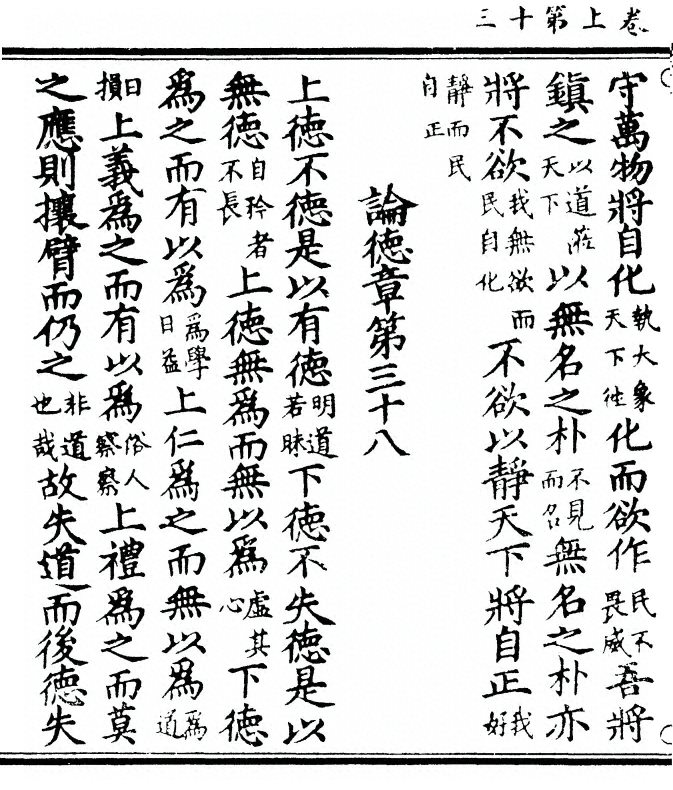 卷上第十三
守萬物將自化執大象天下徃化而欲作民不畏威吾將
鎮之以道蒞天下以無名之朴不見而名無名之朴亦
將不欲我無欲而民自化不欲以靜天下將自正我好
靜而民自正
論徳章第三十八
上徳不徳是以有徳明道若昧下徳不失徳是以
無徳自矜者不長上徳無爲而無以爲虛其心下徳
爲之而有以爲爲學日益上仁爲之而無以爲爲道
日損上義爲之而有以爲俗人察察上禮爲之而莫
之應則攘臂而仍之非道也哉故失道而後徳失